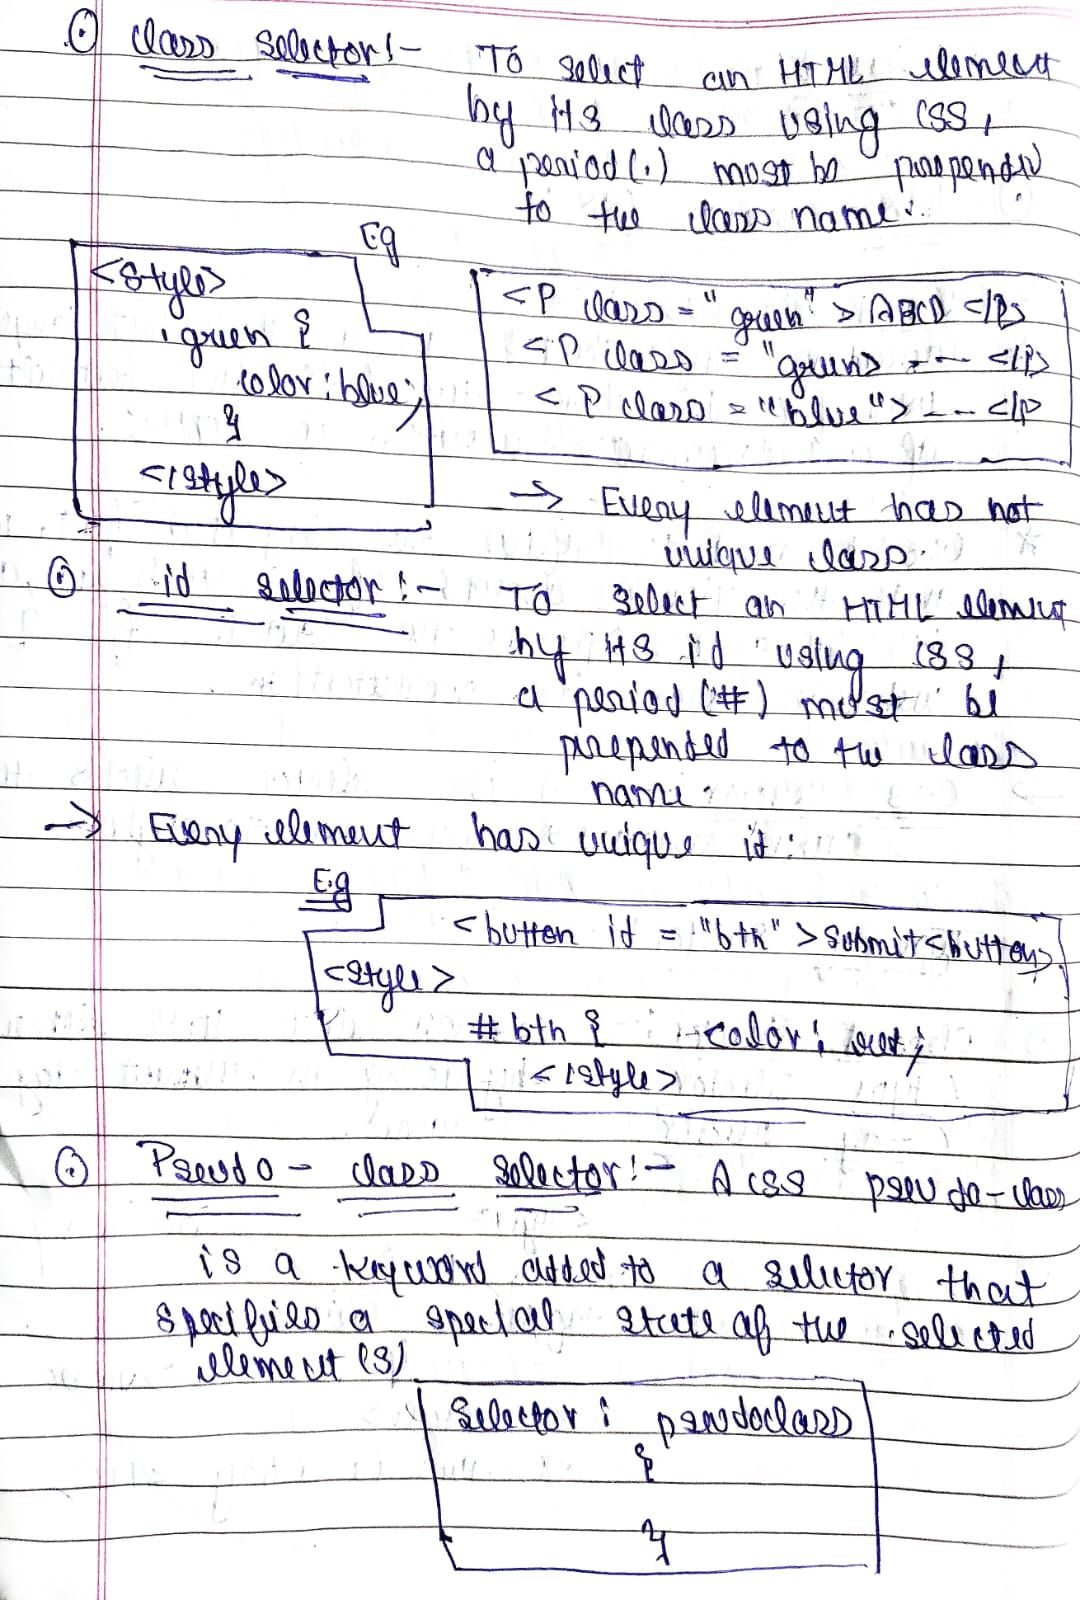 ⊙ class selector:- To select an HTML element
by its class using CSS,
a period(.) most be prepended
to the class name.
Eg
<style>
.green {
color: blue;
}
</style>
<P class = "green" > ABCD </P>
<P class = "green> -- </P>
<P class = "blue"> -- </P
→ Every element has not
unique class.
⊙ id selector :- To select an HTML element
by its id using CSS,
a period (#) most be
prepended to the class
name.
→ Every element has unique id.
E.g
<button id = "btn" >Submit<button>
<style>
#btn { color: red;
</style>
⊙ Pseudo - class selector:- A CSS pseudo-class
is a keyword added to a selector that
specifies a special state of the selected
element (s)
Selector : pseudoclass
{
}